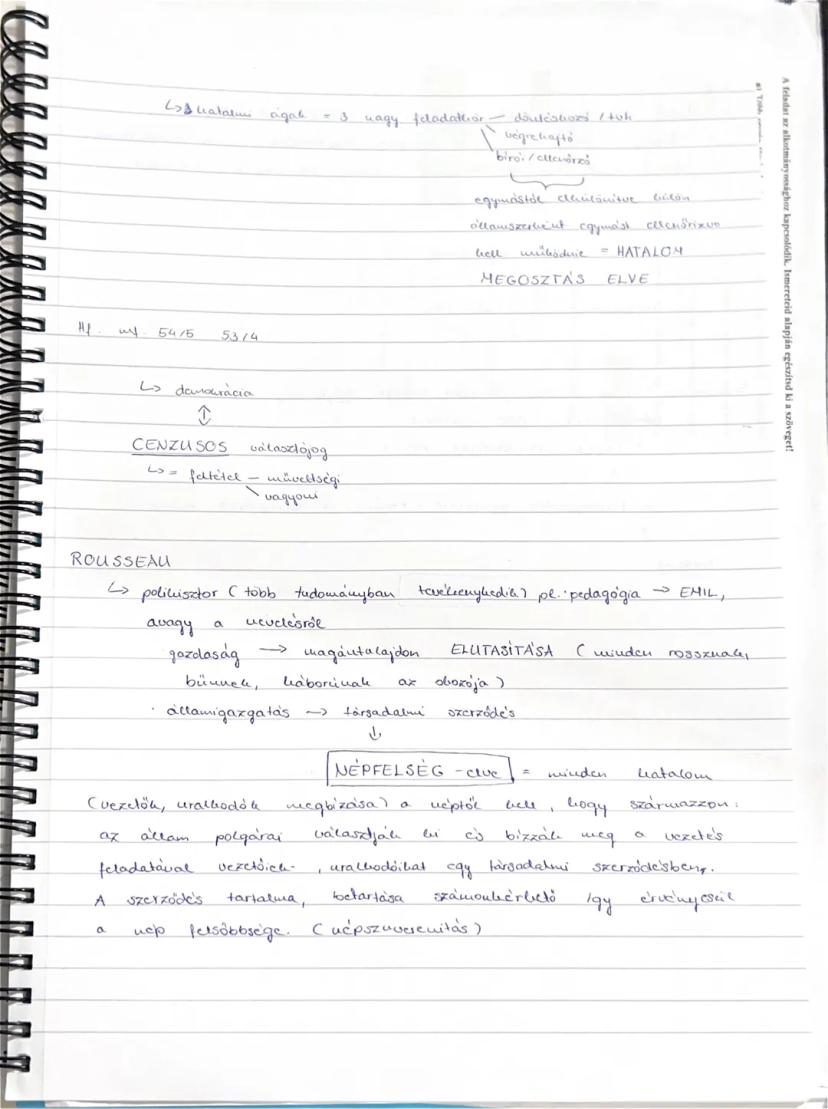 ↳ 3 hatalmi ágak = 3 nagy feladatkör — döntéshozó / tvh
végrehajtó
bírói / ellenőrző
egymástól elkülönítve külön
államszervként egymást ellenőrizve
kell működnie = HATALOM
MEGOSZTÁS ELVE
Hf. mf. 54/5 53/4
↳ demokrácia
⇕
CENZUSOS választójog
↳ = feltétel — műveltségi
vagyoni
ROUSSEAU
↳ polihisztor (több tudományban tevékenykedik) pl. pedagógia → EMIL,
avagy a nevelésről
gazdaság → magántulajdon ELUTASÍTÁSA (minden rossznak,
bűnnek, háborúnak az okozója)
· államigazgatás → társadalmi szerződés
↓
NÉPFELSÉG - elve = minden hatalom
(vezetők, uralkodók megbízása) a néptől kell, hogy származzon:
az állam polgárai választják ki és bízzák meg a vezetés
feladatával vezetőik-, uralkodóikat egy társadalmi szerződésben.
A szerződés tartalma, betartása számonkérhető így érvényesül
a nép felsőbbsége. (népszuverenitás)
A feladat az alkotmányossághoz kapcsolódik. Ismereteid alapján egészítsd ki a szöveget!